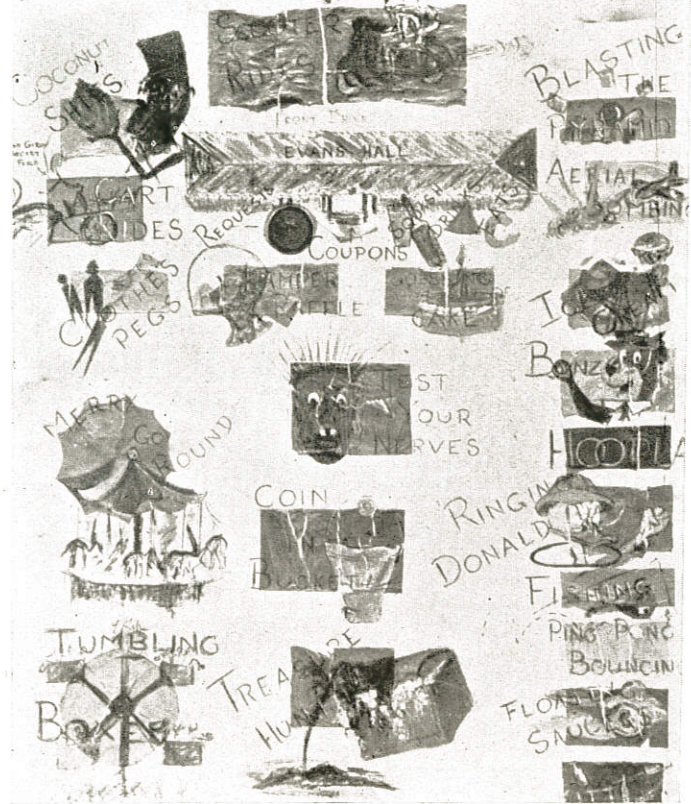 COCONUT
SHIES
SCOOTER
RIDES
BLASTING
THE
CART
RIDES
EVANS HALL
AERIAL
BOMBING
REQUESTS
COUPONS
DOUGH
DRINKS
EATS
CLOTHES
PEGS
CAKE
BONZO
TEST
YOUR
NERVES
HOOPLA
MERRY
GO
ROUND
COIN
IN
BUCKET
RINGIN
DONALD
FISHING
PING PONG
BOUNCIN
TUMBLING
BOXES
TREASURE
HUNT
FLOATIN
SAUCER